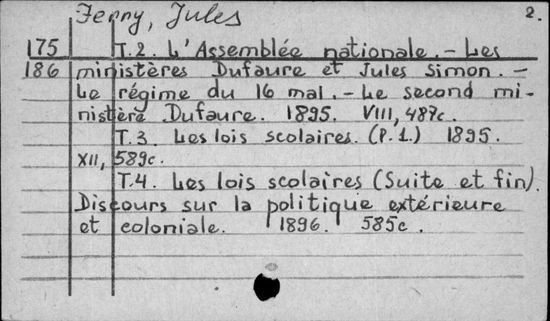 Ferry, Jules 2.
175 T.2. L'Assemblée nationale. - Les
186 ministères Dufaure et Jules Simon. -
Le régime du 16 mai. - Le second mi-
nistère Dufaure. 1895. VIII, 487c.
T.3. Les lois scolaires. (P.1.) 1895.
XII, 589c.
T.4. Les lois scolaires (Suite et fin).
Discours sur la politique extérieure
et coloniale. 1896. 585c.